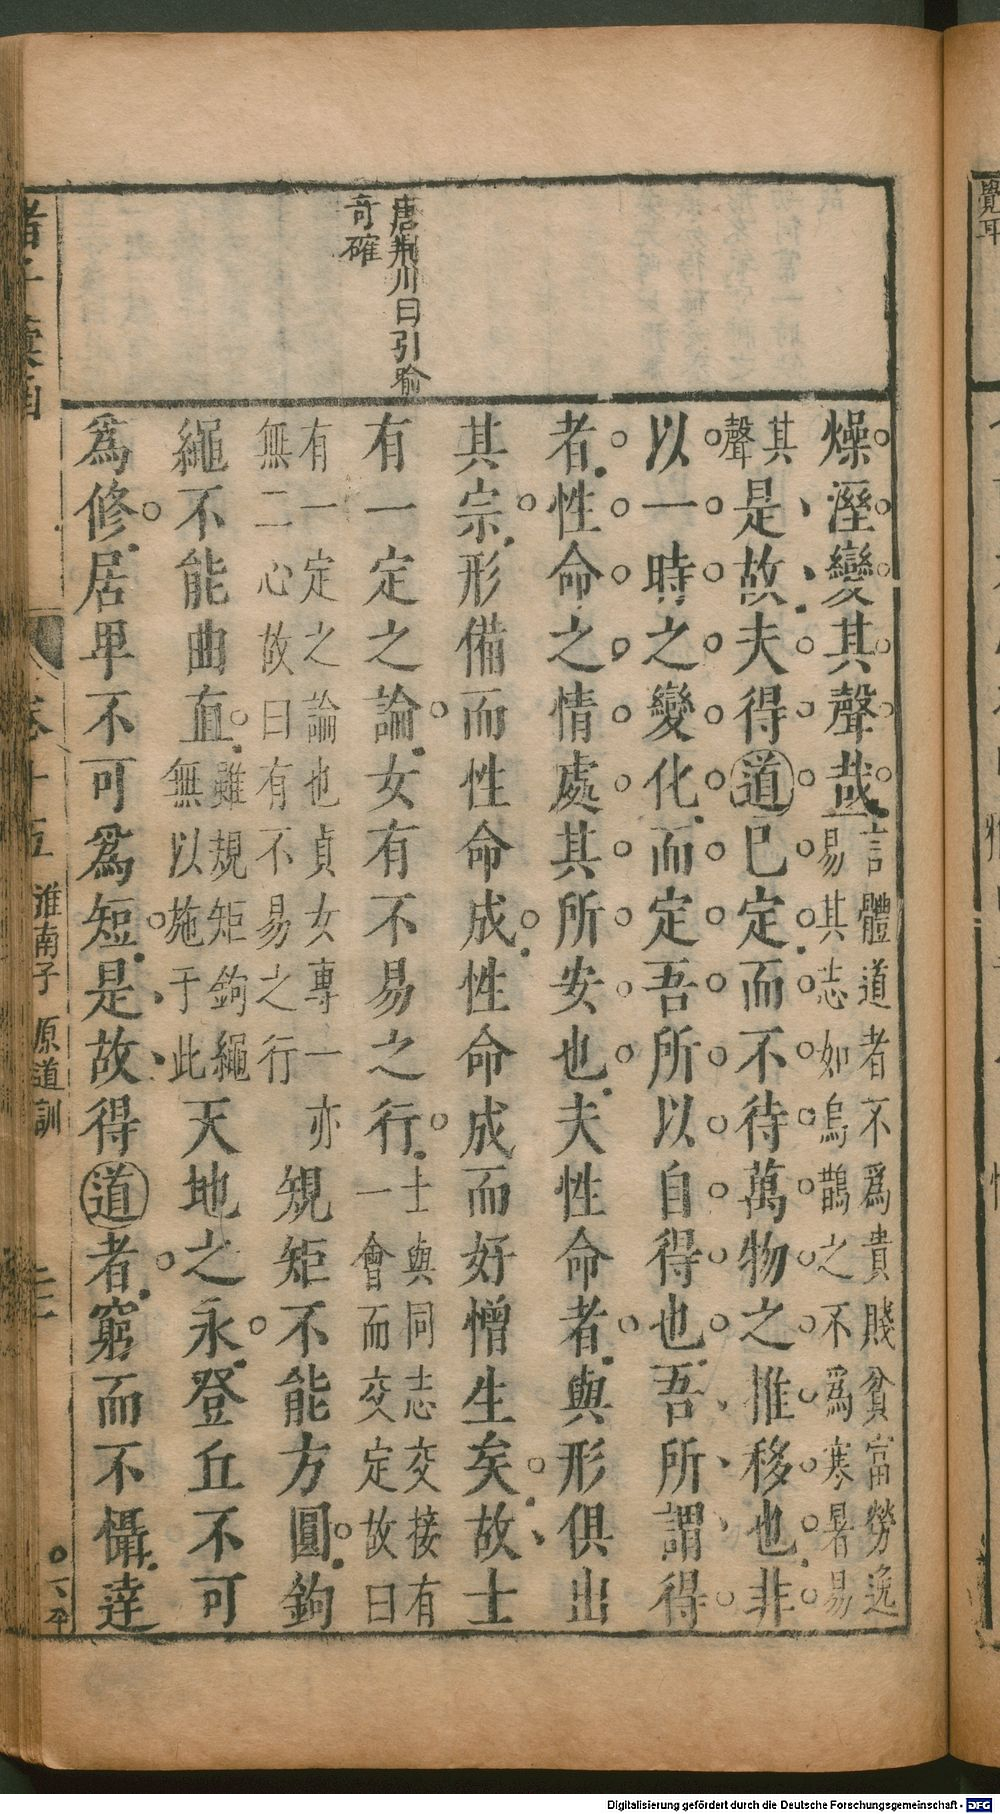 覺耳
唐荆川曰引喻
奇確
燥溼變其聲哉言體道者不爲貴賤貧富勞逸
易其志如烏鵲之不爲寒暑易
其
聲
是故夫得道已定而不待萬物之推移也非
以一時之變化而定吾所以自得也吾所謂得
者性命之情處其所安也夫性命者與形俱出
其宗形備而性命成性命成而好憎生矣故士
有一定之論女有不易之行士與同志交接有
一會而交定故曰
有一定之論也貞女專一亦
無二心故曰有不易之行
規矩不能方圓鉤
繩不能曲直雖規矩鉤繩
無以施于此
天地之永登丘不可
爲修居卑不可爲短是故得道者窮而不懾達
卷十五
淮南子 原道訓
Digitalisierung gefördert durch die Deutsche Forschungsgemeinschaft - DFG